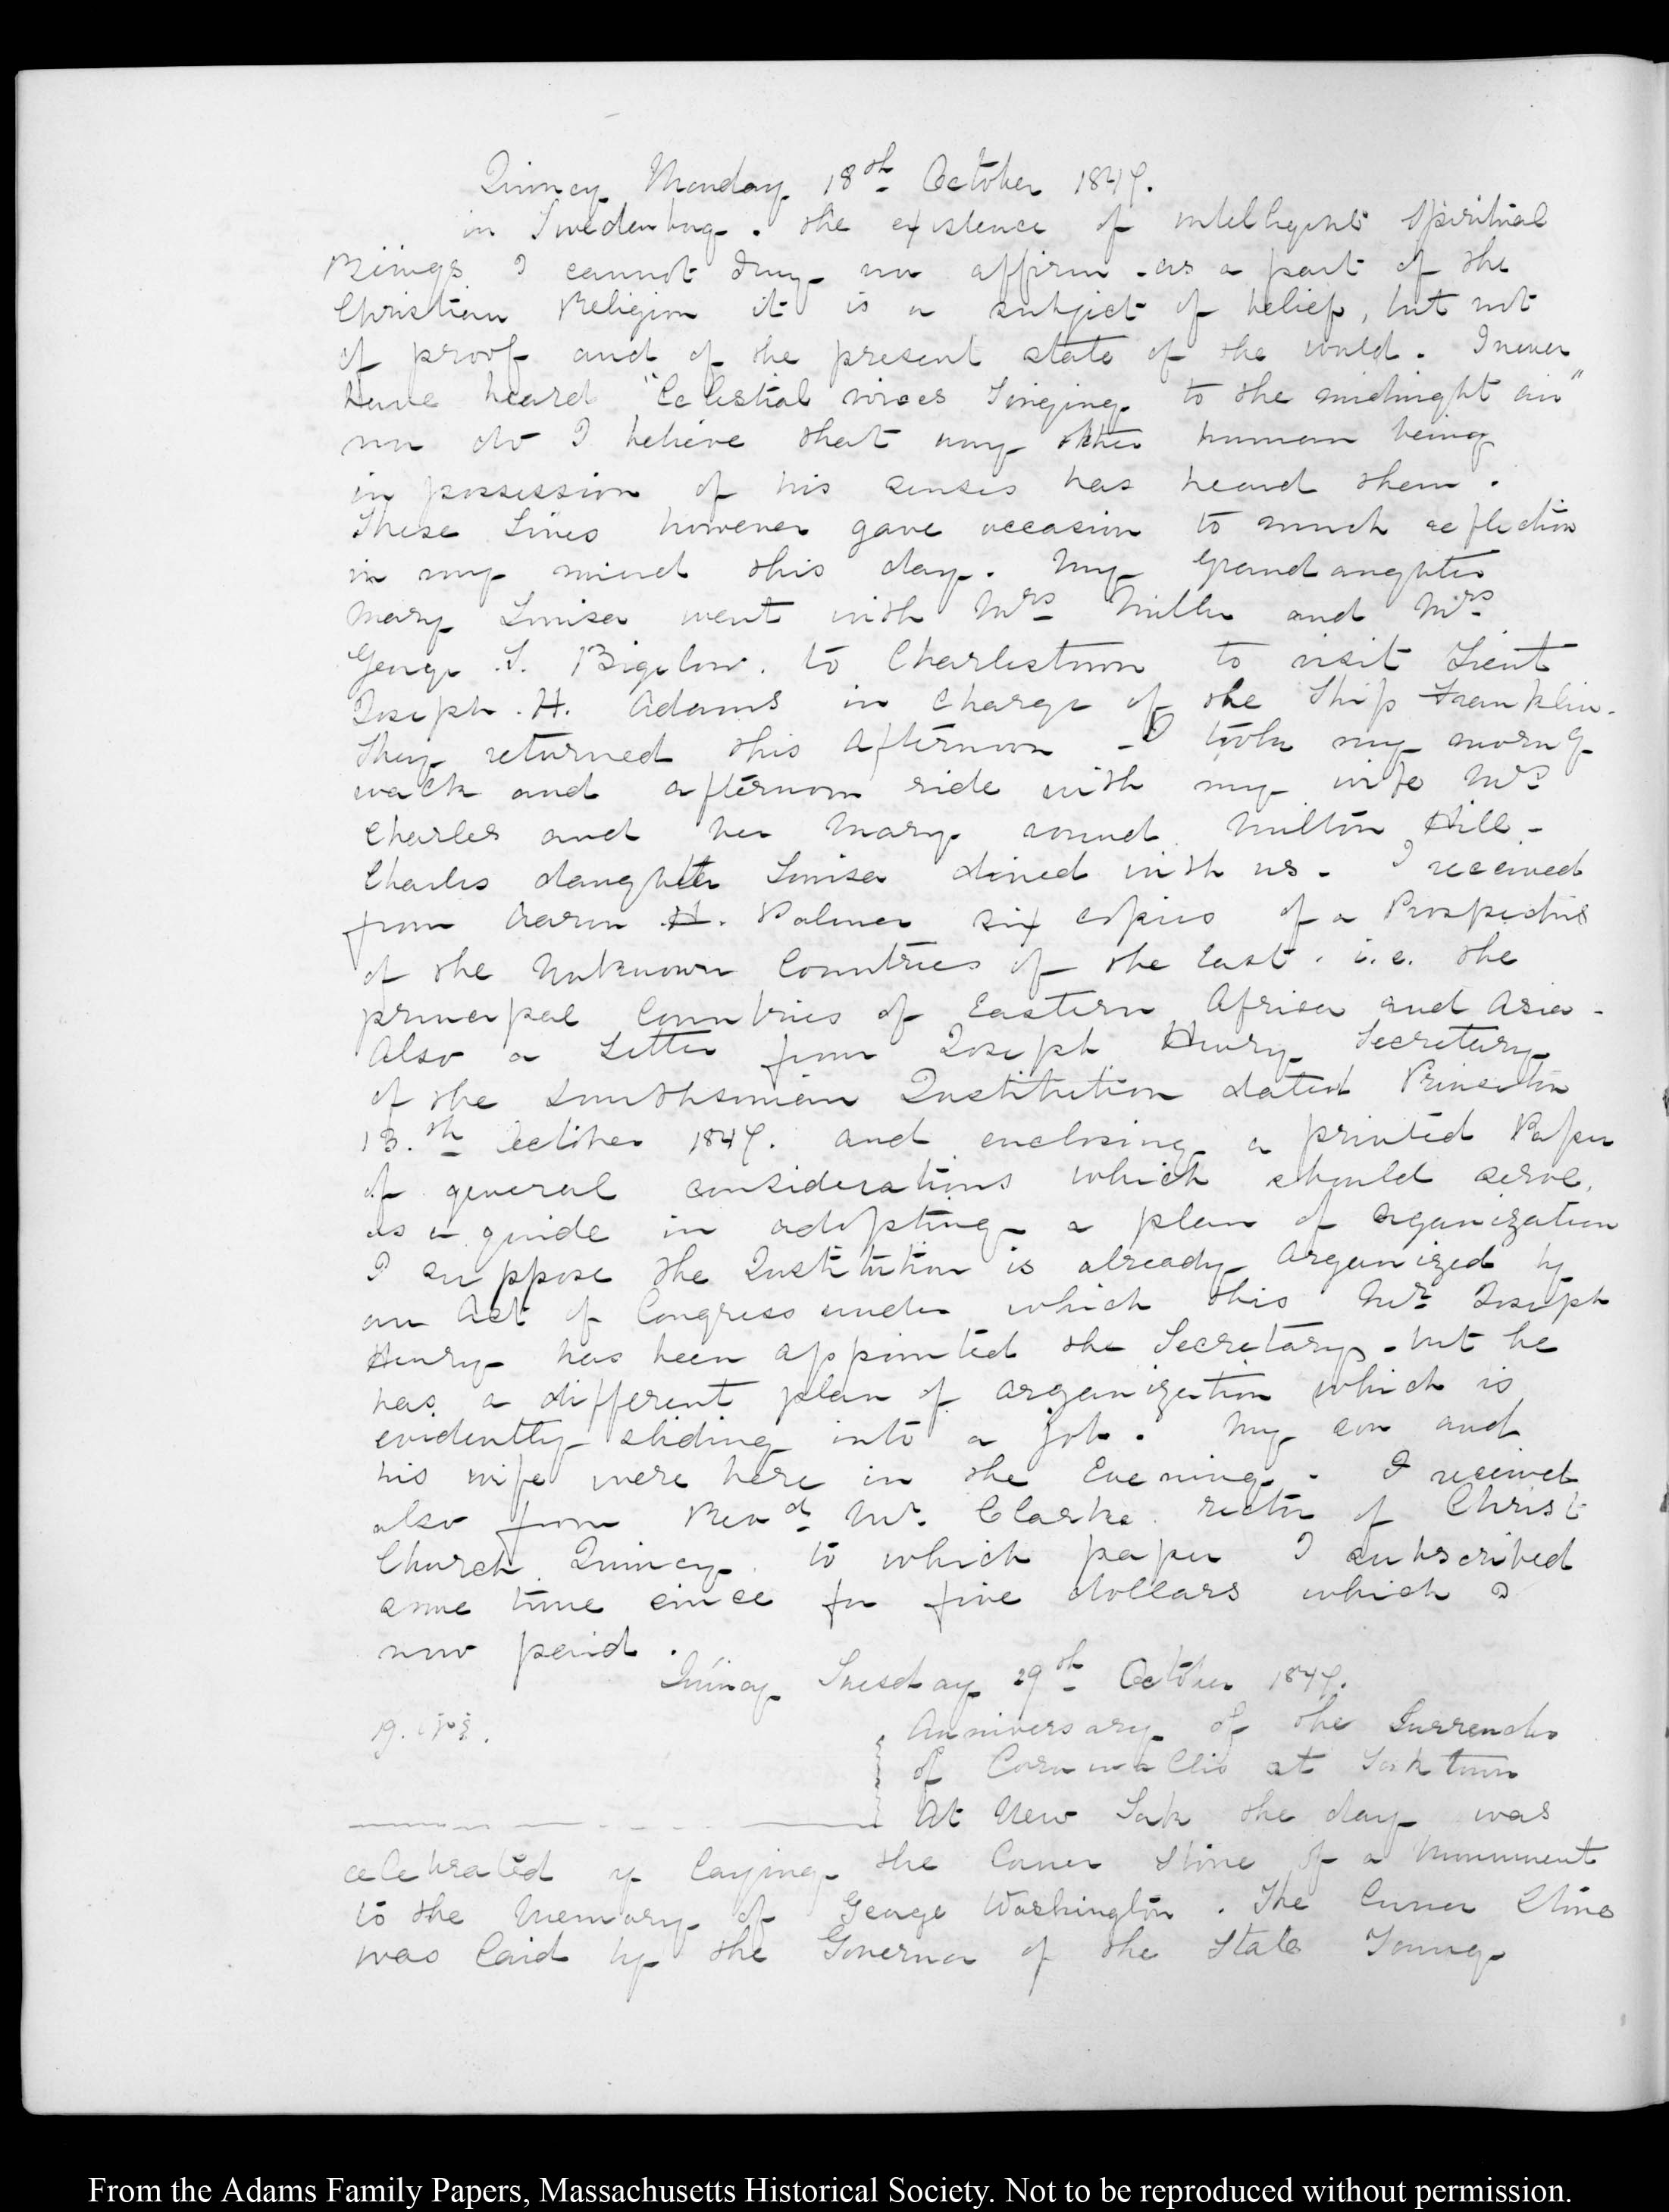 Quincy Monday 18th October 1847.
in Swedenborg. The existence of intelligent Spiritual
Beings I cannot deny nor affirm - as a part of the
Christian Religion it is a subject of belief, but not
of proof and of the present state of the world. I never
have heard "Celestial voices Singing to the midnight air"
nor do I believe that any other human being
in possession of his senses has heard them.
These Lines however gave occasion to much reflection
in my mind this day. My Grandaughter
Mary Louisa went with Mrs Miller and Mrs
George T. Bigelow. to Charlestown to visit Lieut
Joseph. H. Adams in charge of the Ship Franklin.
They returned this afternoon - I took my morng
walk and afternoon ride with my wife Mrs
Charles and her Mary round Milton Hill -
Charles daughter Louisa dined with us. I received
from Aaron H. Palmer six copies of a Prospectus
of the Unknown Countries of the East. i.e. the
principal Countries of Eastern Africa and Asia -
Also a Letter from Joseph Henry Secretary
of the Smithsonian Institution dated Princeton
13.th October 1847. and enclosing a printed Paper
of general considerations which should serve,
as a guide in adopting a plan of organization
I suppose the Institution is already organized by
an Act of Congress under which this Mr Joseph
Henry has been appointed the Secretary - but he
has a different plan of organization which is
evidently sliding into a job. My son and
his wife were here in the Evening. I received
also from Revd Mr. Clarke. rector of Christ
Church Quincy. to which paper I subscribed
some time since for five dollars which I
now paid.
Quincy Tuesday 29th October 1847.
19.
Anniversary of the Surrender
of Cornwallis at Yorktown
At New York the day was
celebrated by laying the Corner Stone of a Monument
to the Memory of George Washington. The Corner Stone
was laid by the Governor of the State Young
From the Adams Family Papers, Massachusetts Historical Society. Not to be reproduced without permission.